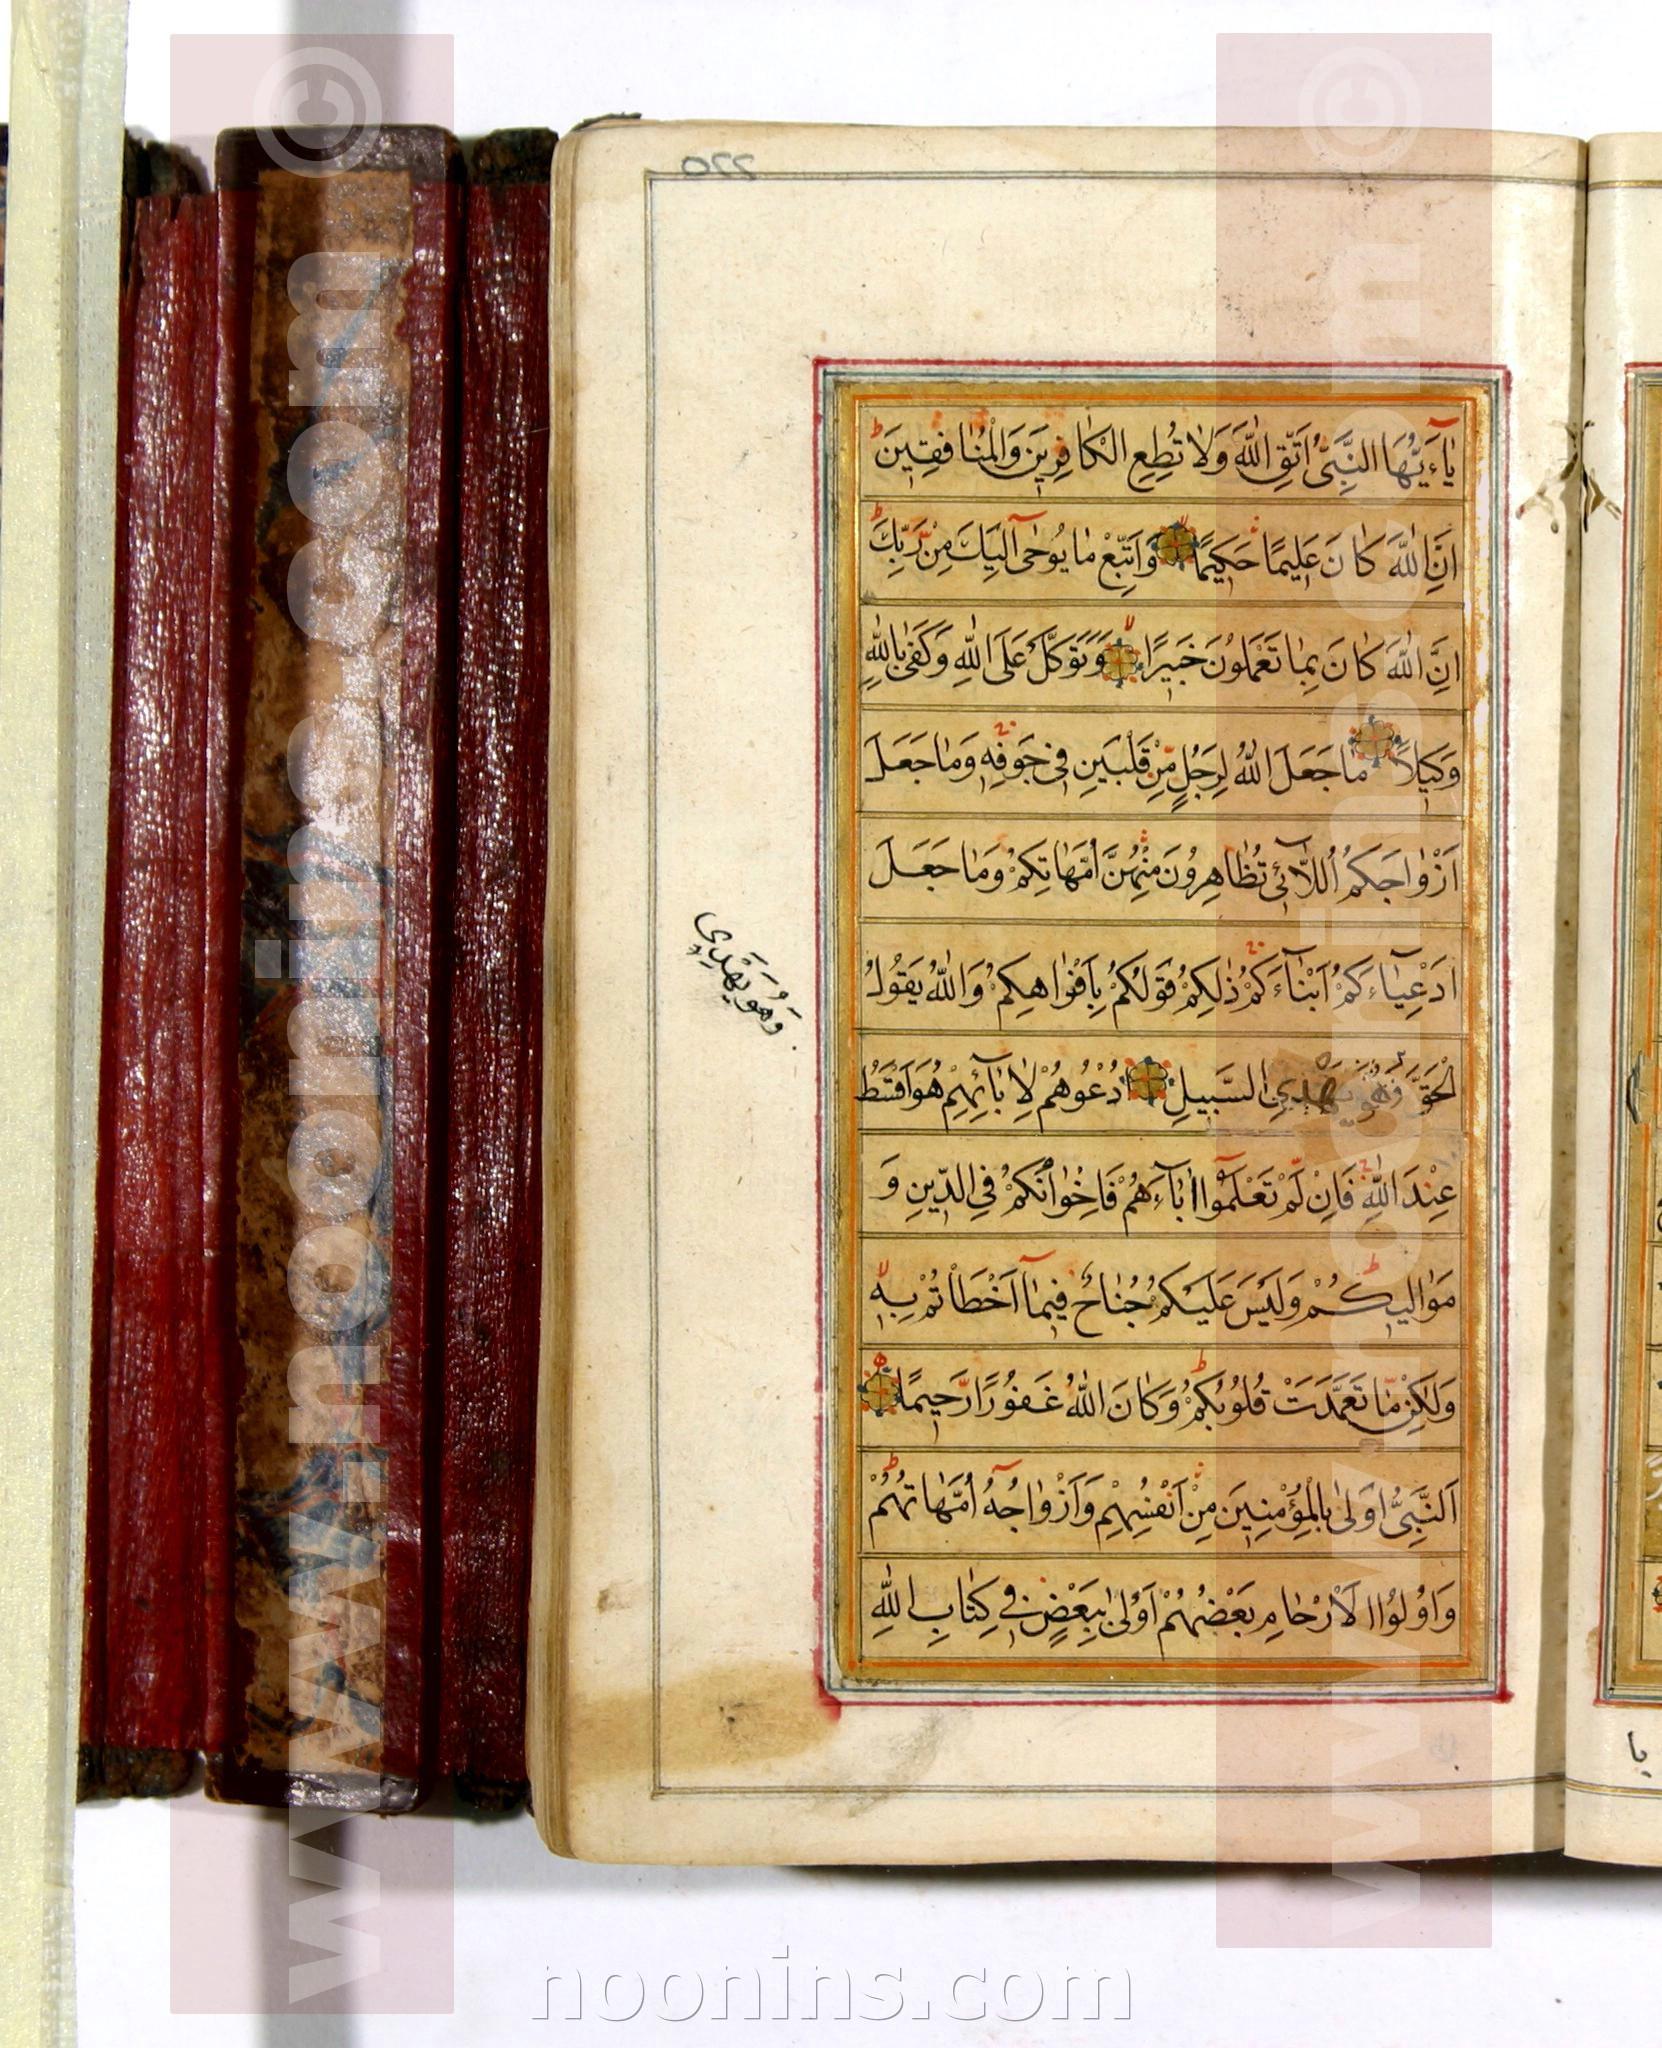 يٰٓاءَيُّهَا النَّبِىُّ اتَّقِ اللّٰهَ وَلَا تُطِعِ الْكَافِرِينَ وَالْمُنَافِقِينَ
اِنَّ اللّٰهَ كَانَ عَلِيمًا حَكِيمًا وَاتَّبِعْ مَا يُوحٰىٓ اِلَيْكَ مِنْ رَبِّكَ
اِنَّ اللّٰهَ كَانَ بِمَا تَعْمَلُونَ خَبِيرًا وَتَوَكَّلْ عَلَى اللّٰهِ وَكَفٰى بِاللّٰهِ
وَكِيلًا مَا جَعَلَ اللّٰهُ لِرَجُلٍ مِنْ قَلْبَيْنِ فِى جَوْفِهِ وَمَا جَعَلَ
اَزْوَاجَكُمُ اللَّآئِى تُظَاهِرُونَ مِنْهُنَّ اُمَّهَاتِكُمْ وَمَا جَعَلَ
اَدْعِيَآءَكُمْ اَبْنَآءَكُمْ ذٰلِكُمْ قَوْلُكُمْ بِاَفْوَاهِكُمْ وَاللّٰهُ يَقُولُ
الْحَقَّ وَهُوَ يَهْدِى السَّبِيلَ اُدْعُوهُمْ لِاٰبَآئِهِمْ هُوَ اَقْسَطُ
عِنْدَ اللّٰهِ فَاِنْ لَمْ تَعْلَمُوٓا اٰبَآءَهُمْ فَاِخْوَانُكُمْ فِى الدِّينِ وَ
مَوَالِيكُمْ وَلَيْسَ عَلَيْكُمْ جُنَاحٌ فِيمَآ اَخْطَاْتُمْ بِهِ
وَلٰكِنْ مَا تَعَمَّدَتْ قُلُوبُكُمْ وَكَانَ اللّٰهُ غَفُورًا رَحِيمًا
اَلنَّبِىُّ اَوْلٰى بِالْمُؤْمِنِينَ مِنْ اَنْفُسِهِمْ وَاَزْوَاجُهُ اُمَّهَاتُهُمْ
وَاُولُوا الْاَرْحَامِ بَعْضُهُمْ اَوْلٰى بِبَعْضٍ فِى كِتَابِ اللّٰهِ
وَهُوَ يَهْدِي
يا
www.noonins.com ©
www.noonins.com ©
noonins.com